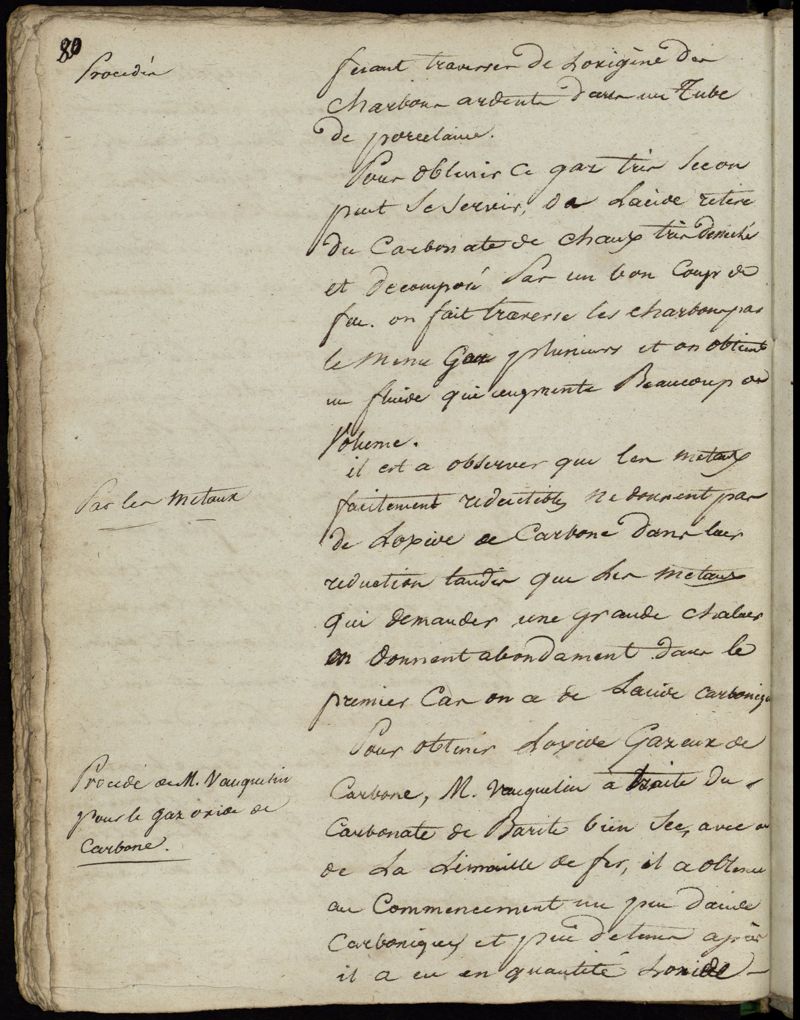 80
Procédés
fesant traverser de Loxigène des
charbons ardents dans un Tube
de porcelaine.
Pour obtenir ce gaz très sec on
peut se servir, de Lacide retiré
du Carbonate de chaux très desseché
et decomposé Par un bon Coup de
feu. on fait traverse les charbons par
le meme Gaz plusieurs et on obtient
un fluide qui augmente Beaucoup de
Volume.
Par les metaux
il est a observer que les metaux
faitement reductibles ne donnent pas
de Loxide de Carbone dans leur
reduction tandis que les metaux
qui demander une grande chaleur
en donnent abondament dans le
premier Cas on a de Lacide carbonique
Procédé de M. Vauquelin
pour le gaz oxide de
Carbone.
Pour obtenir Loxide Gazeux de
Carbone, M. Vauquelin à traite du
Carbonate de Barite bien sec, avec
de La Limaille de fer, il a obtenu
au Commencement un peu dacide
Carbonique et peu de tems après
il a eu en quantité Loxide